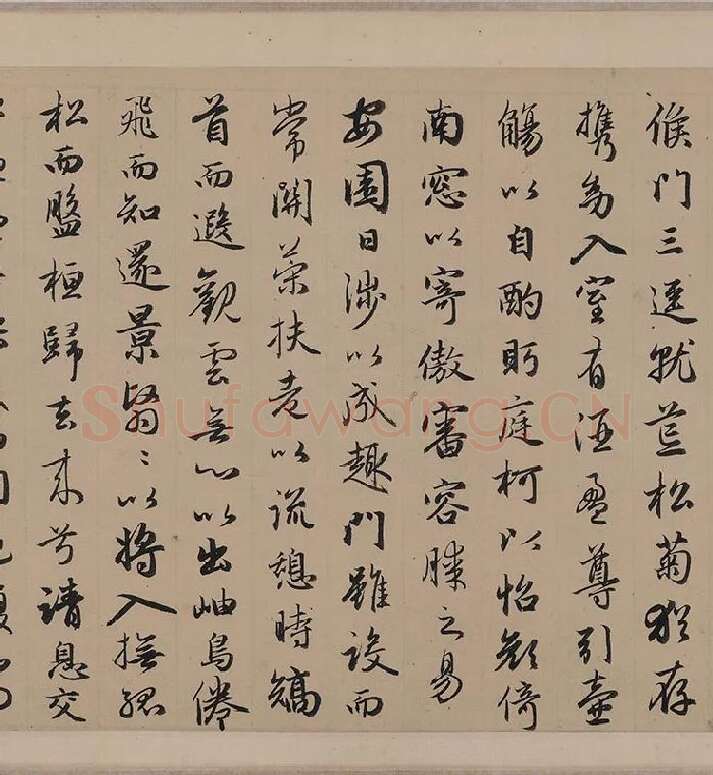 候門三逕就荒松菊猶存
携幼入室有酒盈尊引壺
觴以自酌眄庭柯以怡顏倚
南窓以寄傲審容膝之易
安園日涉以成趣門雖設而
常關策扶老以流憩時矯
首而遐觀雲無心以出岫鳥倦
飛而知還景翳〻以將入撫孤
松而盤桓歸去来兮請息交
Shufawang.CN